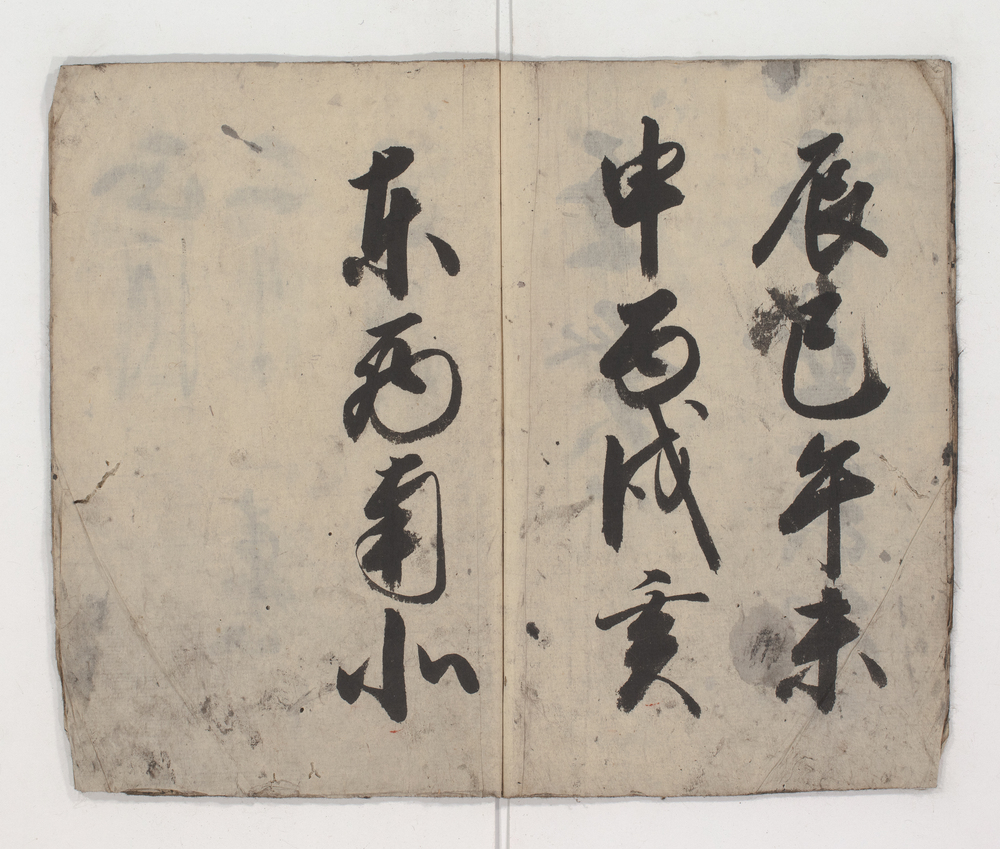 辰巳午未
申酉戌亥
東西南北